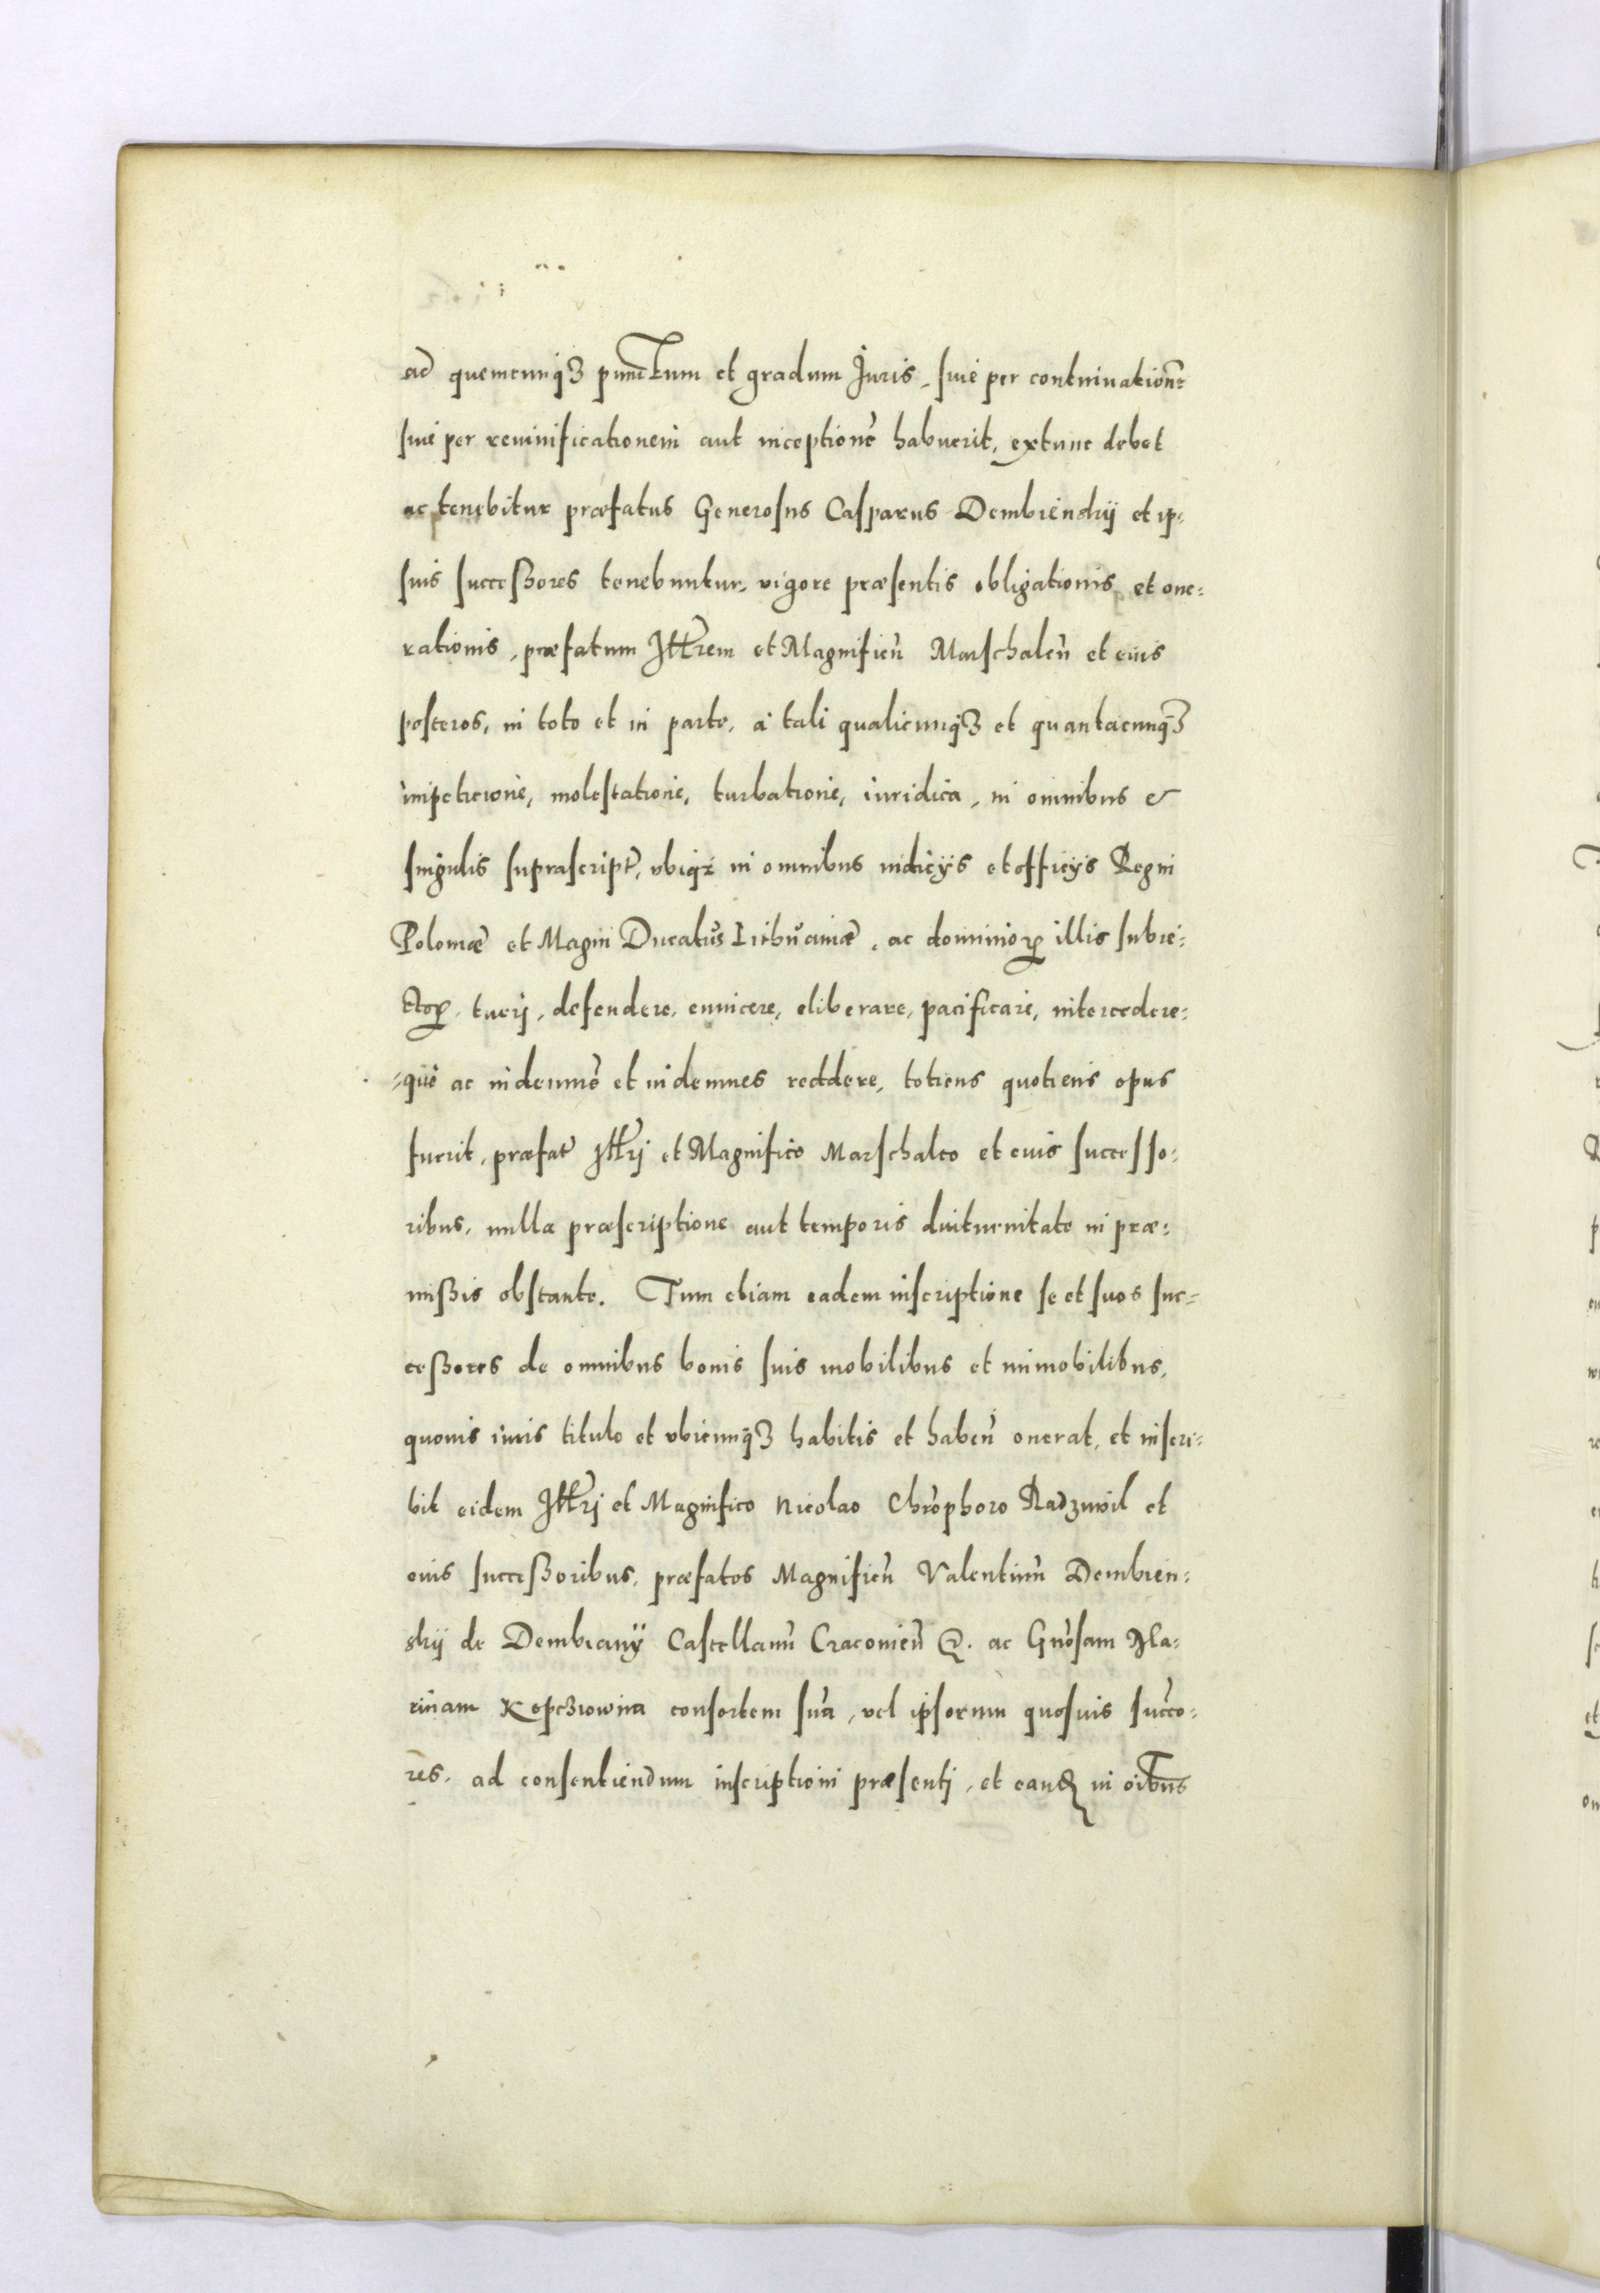 ad quemcunqȝ punctum et gradum Juris, siue per continuationē
siue per reuiuificationem aut inceptionē habuerit, extunc debet
ac tenebitur præfatus Generosus Casparus Dembienskij et ip-
sius successores tenebuntur, vigore præsentis obligationis et one-
rationis, præfatum Illtrem et Magnificū Marschalcū et eius
posteros, in toto et in parte, a tali qualicunqȝ et quantacunqȝ
impeticione, molestatione, turbatione, iuridica, in omnibus &
singulis suprascript̃, vbiqȝ in omnibus iudicijs et officijs Regni
Poloniæ et Magni Ducatus Lithuaniæ, ac dominioꝝ illis subie-
ctoꝝ, tuerj, defendere, euincere, eliberare, pacificare, intercedere-
-que ac indemnē et indemnes reddere, totiens quotiens opus
fuerit, præfat̃ Illtrj et Magnifico Marschalco et eius successo-
ribus, nulla præscriptione aut temporis diuturnitate in præ-
missis obstante. Tum etiam eadem inscriptione se et suos suc-
cessores de omnibus bonis suis mobilibus et immobilibus,
quouis iuris titulo et vbicunqȝ habitis et habeñ onerat, et inscri-
bit eidem Illtrj et Magnifico Nicolao Chrõphoro Radziwil et
eius successoribus, præfatos Magnificū Valentinū Dembien-
skij de Dembiany Castellanū Cracouieñ &. ac Gnõsam Kla-
rinam Kopcziowna consortem suã, vel ipsorum quosuis succo-
res, ad consentiendum inscriptioni præsentj, et eandꝫ in oĩbus